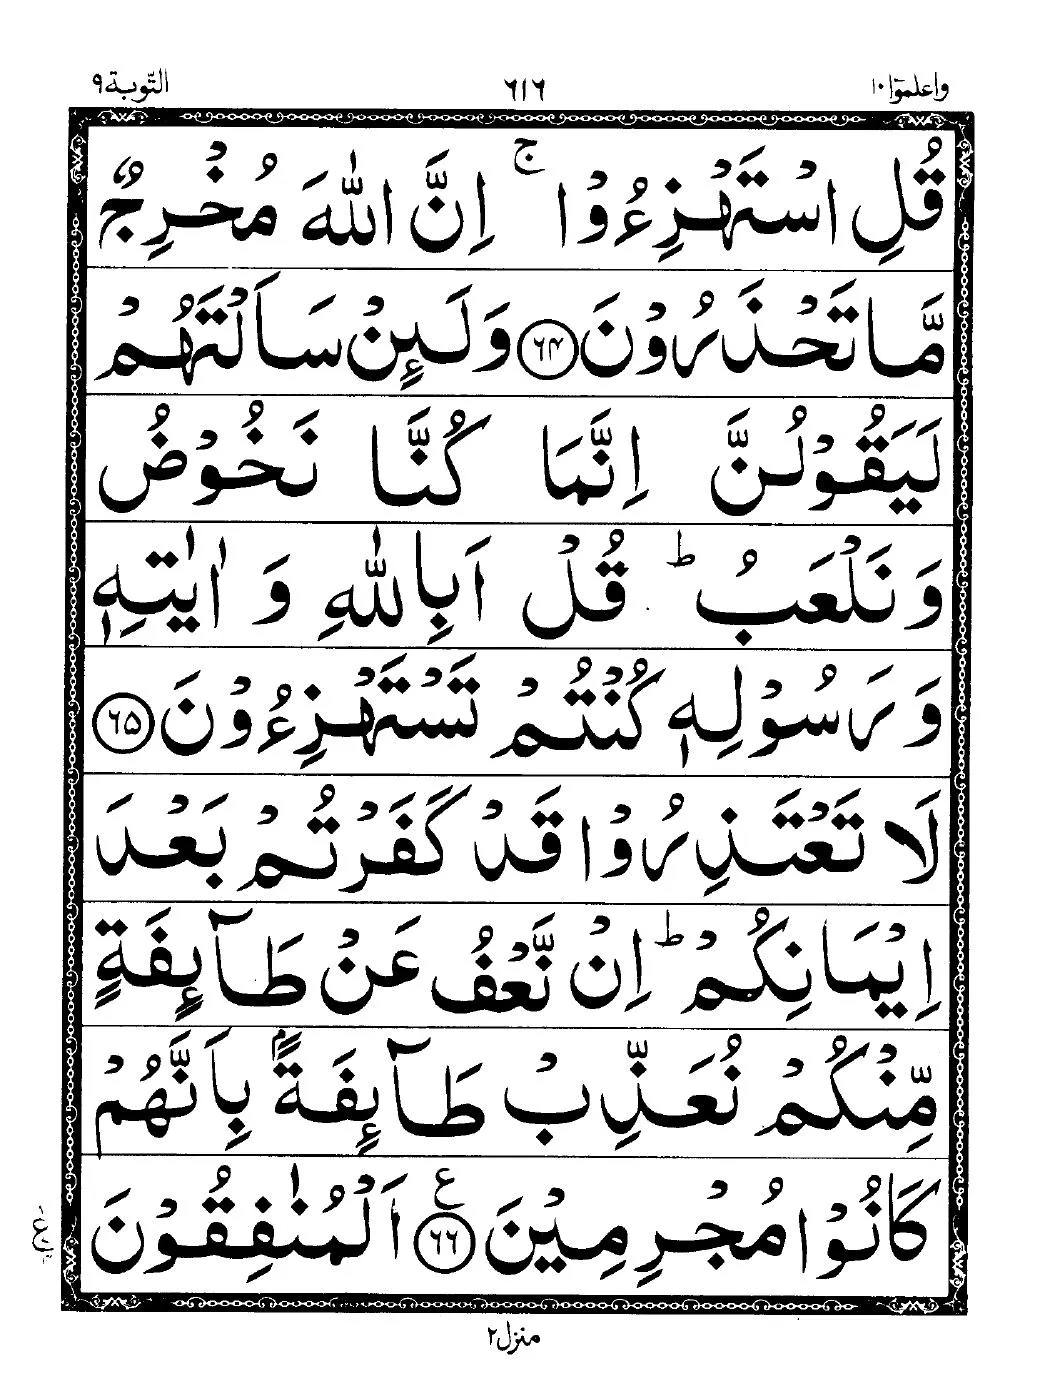 واعلموا١٠ ٦١٦ التّوبة٩
قُلِ اسْتَهْزِءُوْا ۚ اِنَّ اللّٰهَ مُخْرِجٌ
مَّا تَحْذَرُوْنَ ﴿۶۴﴾ وَلَىِٕنْ سَاَلْتَهُمْ
لَيَقُوْلُنَّ اِنَّمَا كُنَّا نَخُوْضُ
وَنَلْعَبُ ؕ قُلْ اَبِاللّٰهِ وَاٰيٰتِهٖ
وَرَسُوْلِهٖ كُنْتُمْ تَسْتَهْزِءُوْنَ ﴿۶۵﴾
لَا تَعْتَذِرُوْا قَدْ كَفَرْتُمْ بَعْدَ
اِيْمَانِكُمْ ؕ اِنْ نَّعْفُ عَنْ طَآىِٕفَةٍ
مِّنْكُمْ نُعَذِّبْ طَآىِٕفَةًۢ بِاَنَّهُمْ
كَانُوْا مُجْرِمِيْنَ ﴿۶۶﴾ ع اَلْمُنٰفِقُوْنَ
منزل٢